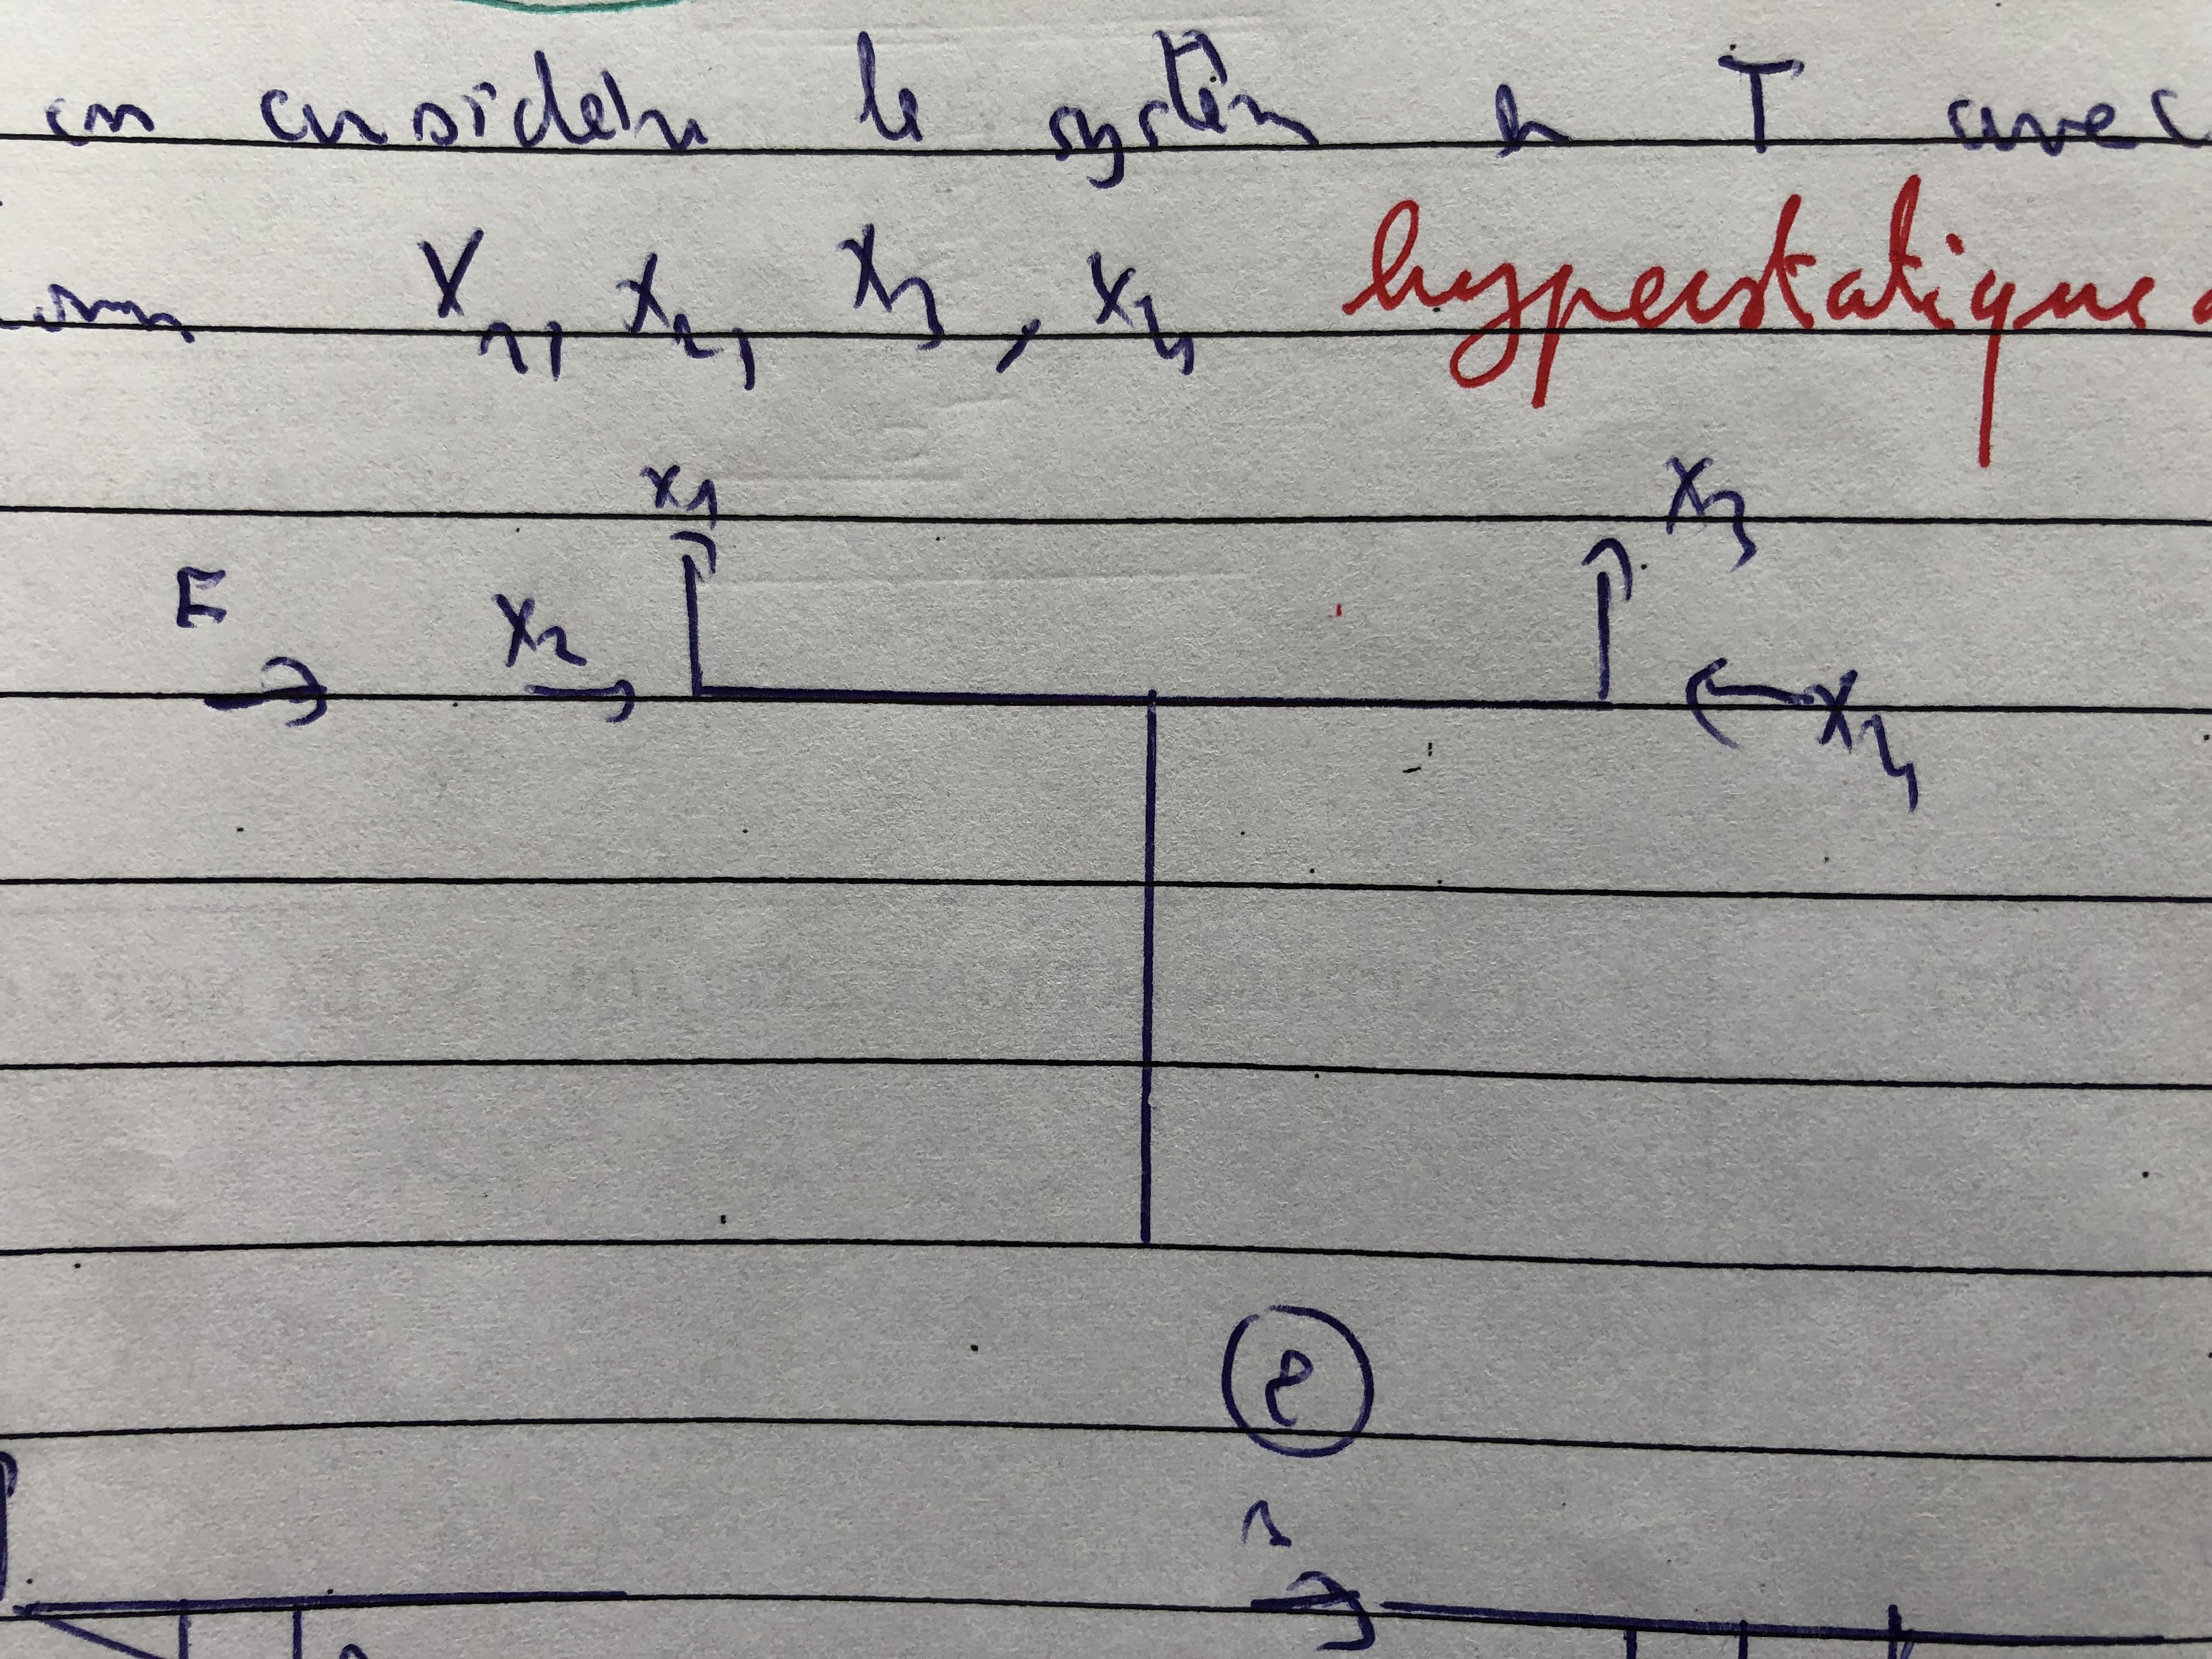 on considère le système en T avec
X1, X2, X3, X4 hyperstatiques
X1 X3
F X2
X4
2
1